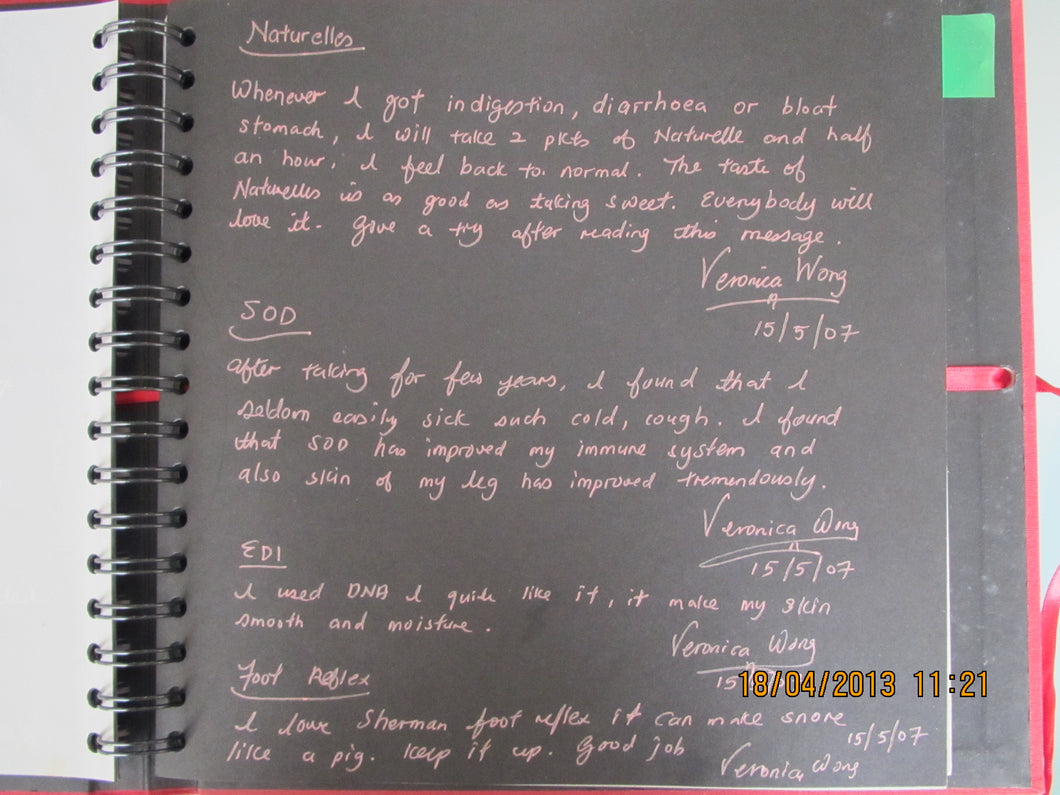 Naturelles
Whenever I got indigestion, diarrhoea or bloat
stomach, I will take 2 pkts of Naturelle and half
an hour, I feel back to normal. The taste of
Naturelles is as good as taking sweet. Everybody will
love it. Give a try after reading this message.
Veronica Wong
15/5/07
SOD
After taking for few years, I found that I
seldom easily sick such cold, cough. I found
that SOD has improved my immune system and
also skin of my leg has improved tremendously.
Veronica Wong
15/5/07
EDI
I used DNA I quite like it, it make my skin
smooth and moisture.
Veronica Wong
15
18/04/2013 11:21
Foot Reflex
I love Sherman foot reflex it can make snore
like a pig. Keep it up. Good job
15/5/07
Veronica Wong